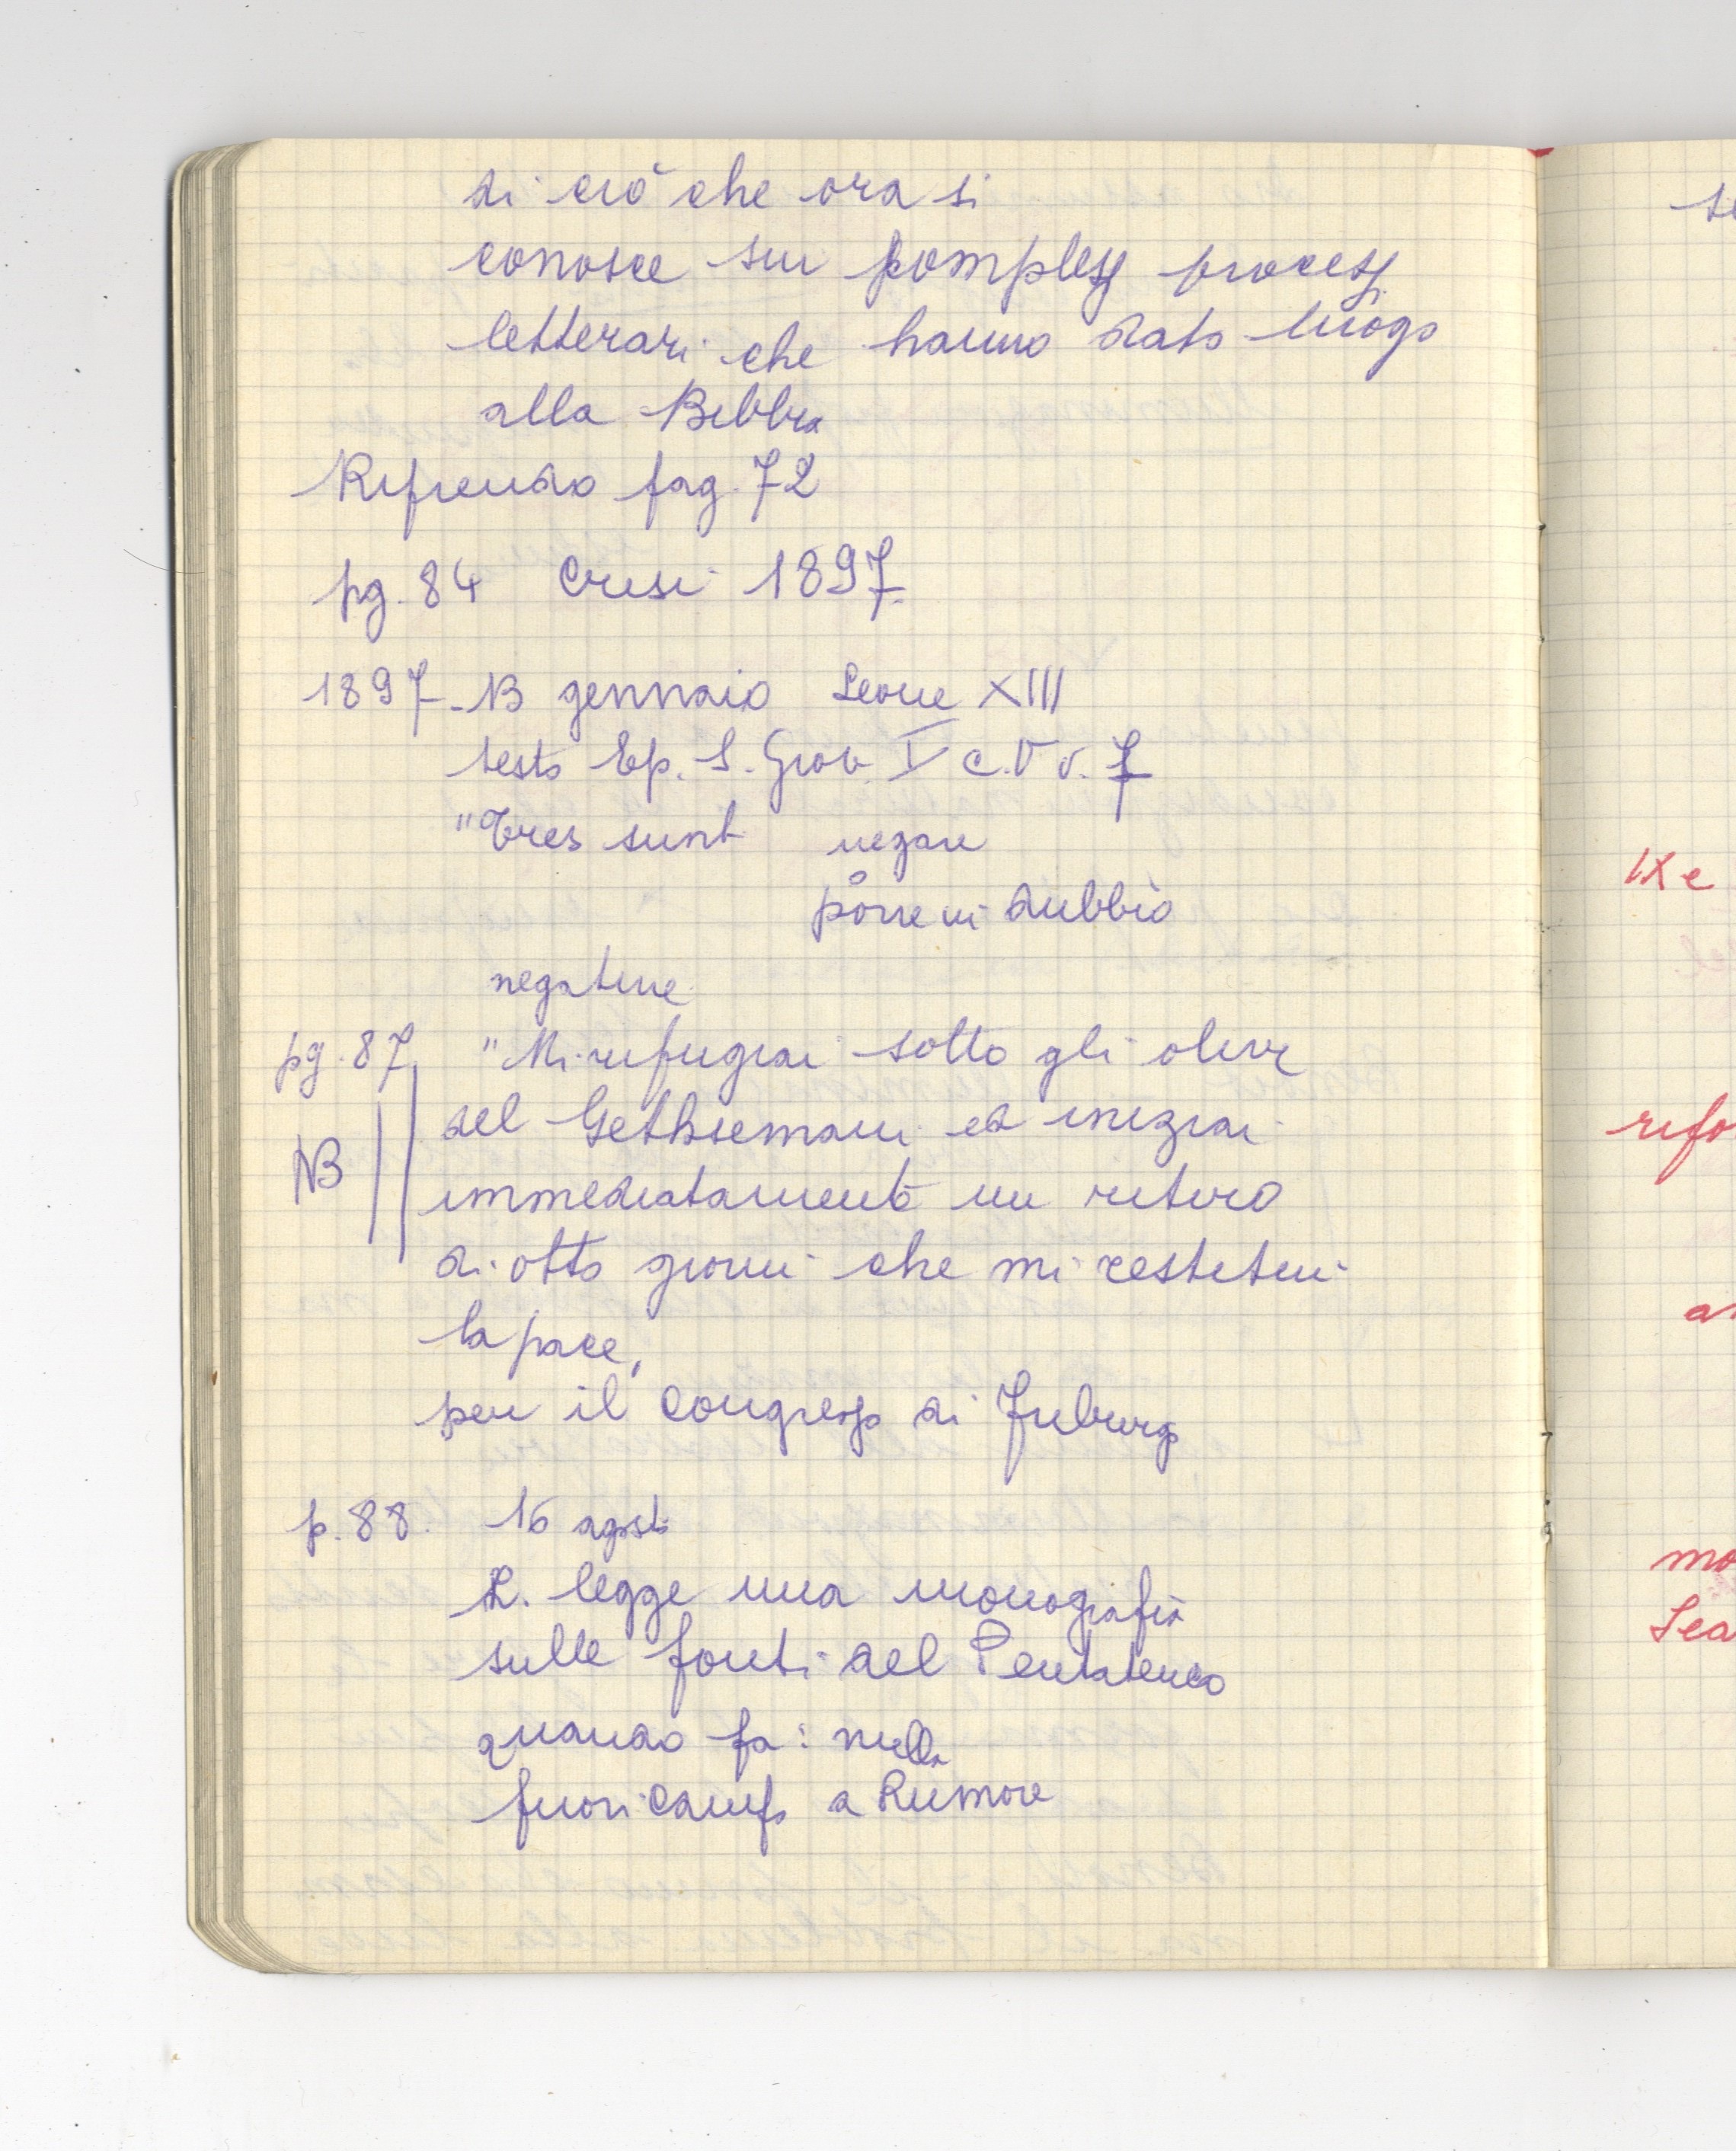 di ciò che ora si
conosce sui complessi processi
letterari che hanno dato luogo
alla Bibbia
Riprendo pag. 72
pg. 84 Crisi 1897.
1897 - 13 gennaio Leone XIII
testo Ep. S. Giov. I c. V v. 7
"Tres sunt negare
o
porre in dubbio
negative
pg. 87 "Mi rifugiai sotto gli olivi
del Gethsemani ed iniziai
NB immediatamente un ritiro
di otto giorni che mi restituì
la pace,
per il congresso di Friburgo
p. 88. 16 agosto
L. legge una monografia
sulle fonti del Pentateuco
quando fa: nella
fuori campo a Rumore
se
IX e
rifo
an
mo
Lea